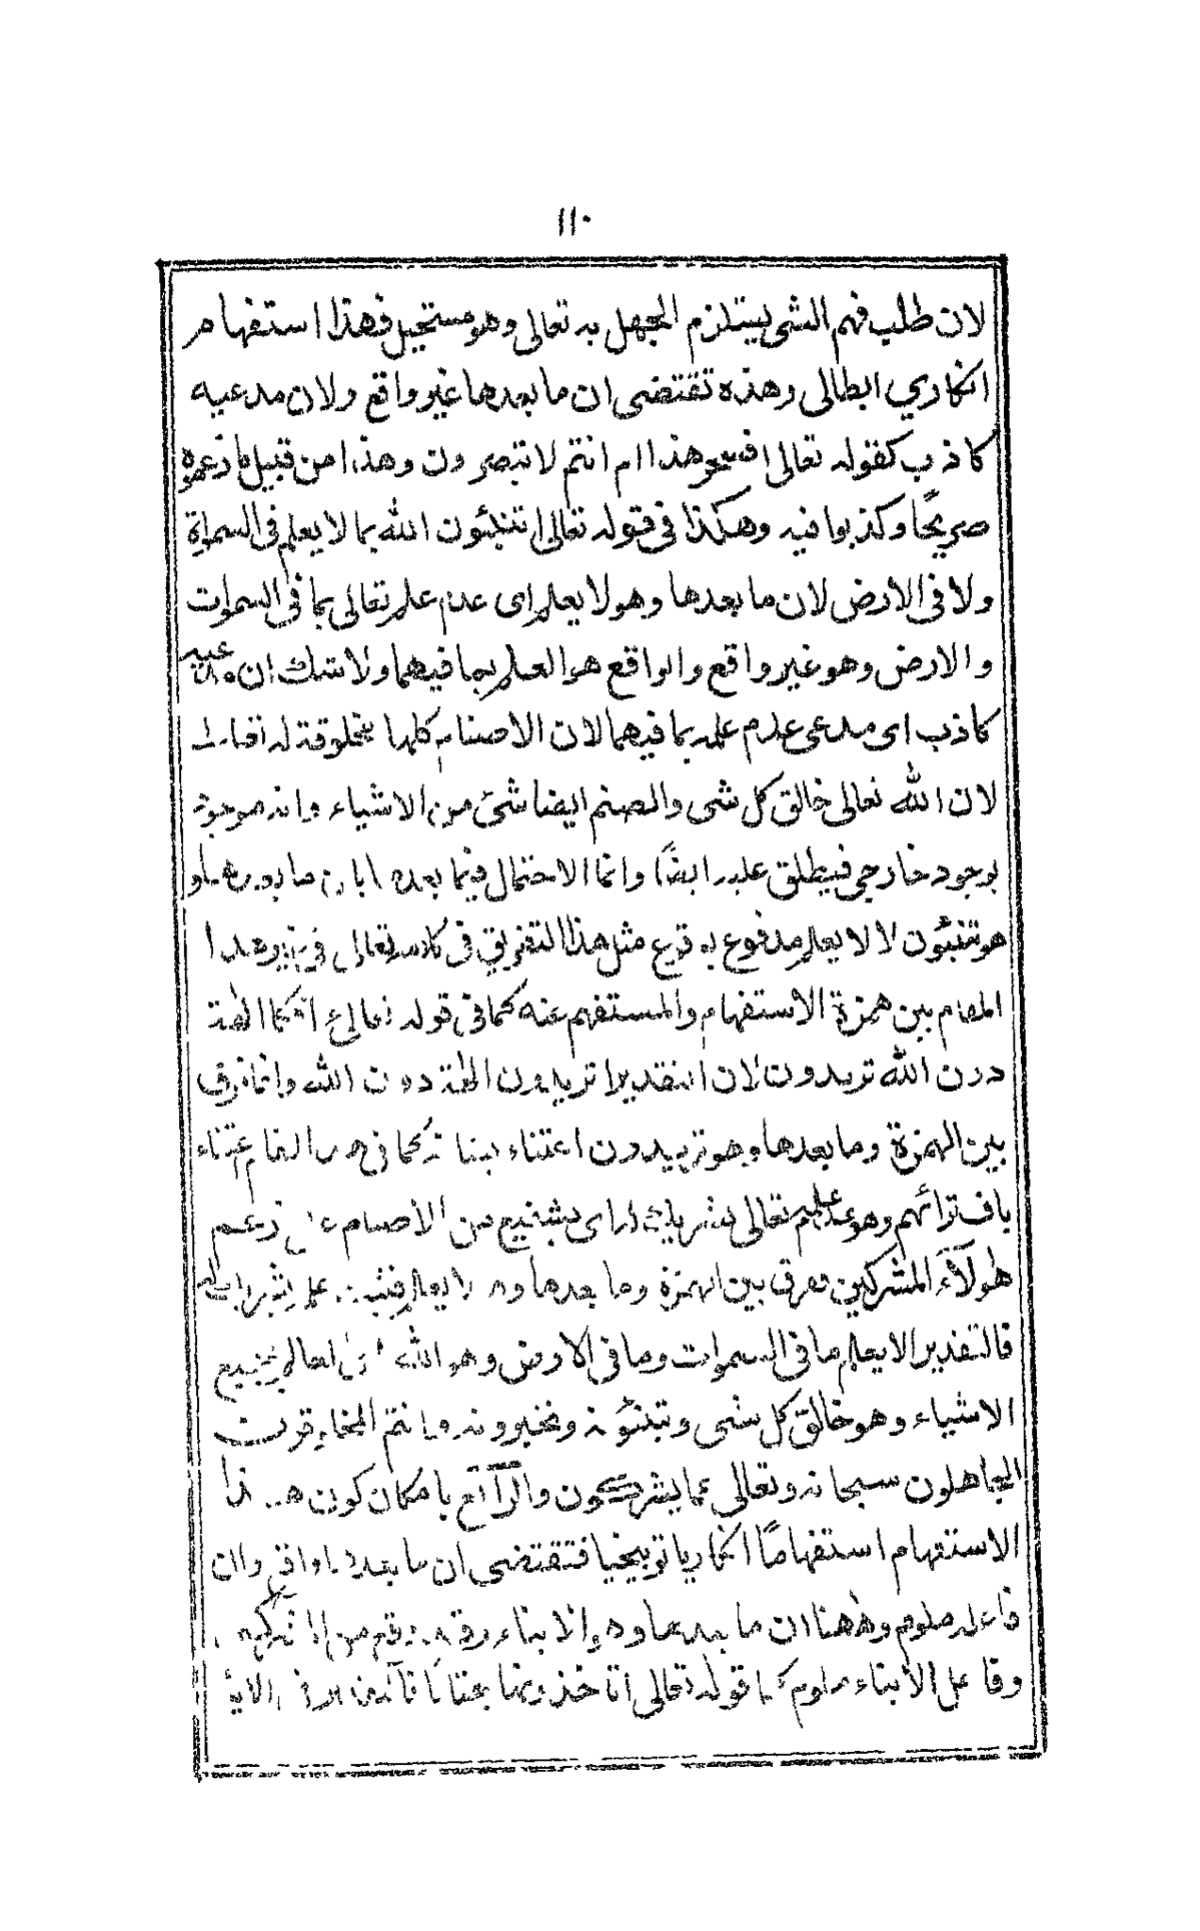 ١١٠
لان طلب فهم الشى يستلزم الجهل به تعالى وهو مستحيل فهذا استفهام
انكاري ابطالى وهذه تقتضى ان ما بعدها غير واقع ولان مدعيه
كاذب كقوله تعالى افسحر هذا ام انتم لا تبصرون وهذا من قبيل ما زعموه
صريحًا وكذبوا فيه وهكذا فى قوله تعالى اتنبئون الله بما لا يعلم فى السماوة
ولا فى الارض لان ما بعدها وهو لا يعلم اى عدم علم تعالى بما فى السموات
والارض وهو غير واقع والواقع هو العلم بما فيهما ولا شك ان مدعيه
كاذب اى مدعى عدم علمه بما فيهما لان الاصنام كلها مخلوقة له تعالى
لان الله تعالى خالق كل شى والصنم ايضا شئ من الاشياء وانه موجود
بوجود خارجى فيطلق عليه ايضًا وانما الاحتمال فيما بعده بان ما بعدها
هو تنبئون لا لا يعلم مدفوع بوقوع مثل هذا التفريق فى كلامه تعالى فى غير هذا
المقام بين همزة الاستفهام والمستفهم عنه كما فى قوله تعالى ائفكا الهة
دون الله تريدون لان التقدير اتريدون الهة دون الله وانما فرق
بين الهمزة وما بعدها وهو تريدون اعتناء كما فى هذا المقام اعتناء
بافترائهم وهو عدم علمه تعالى بشريك اى بشفيع من الاصنام زعم
هولآء المشركين فرق بين الهمزة وما بعدها وهو لا يعلم
فالتقدير الا يعلم ما فى السموات وما فى الارض وهو الله العالم بجميع
الاشياء وهو خالق كل شى وتنبئونه وتخبرونه وانتم المخلوقون
الجاهلون سبحانه وتعالى عما يشركون والرآئع بامكان كون هذا
الاستفهام استفهامًا انكاريا توبيخيا فتقتضى ان ما بعدها واقع وان
فاعله ملوم وههنا ان ما بعدها وهو الانباء وقع من
وفاعل الانباء ملوم كما قوله تعالى اتاخذونها بهتانًا الاية